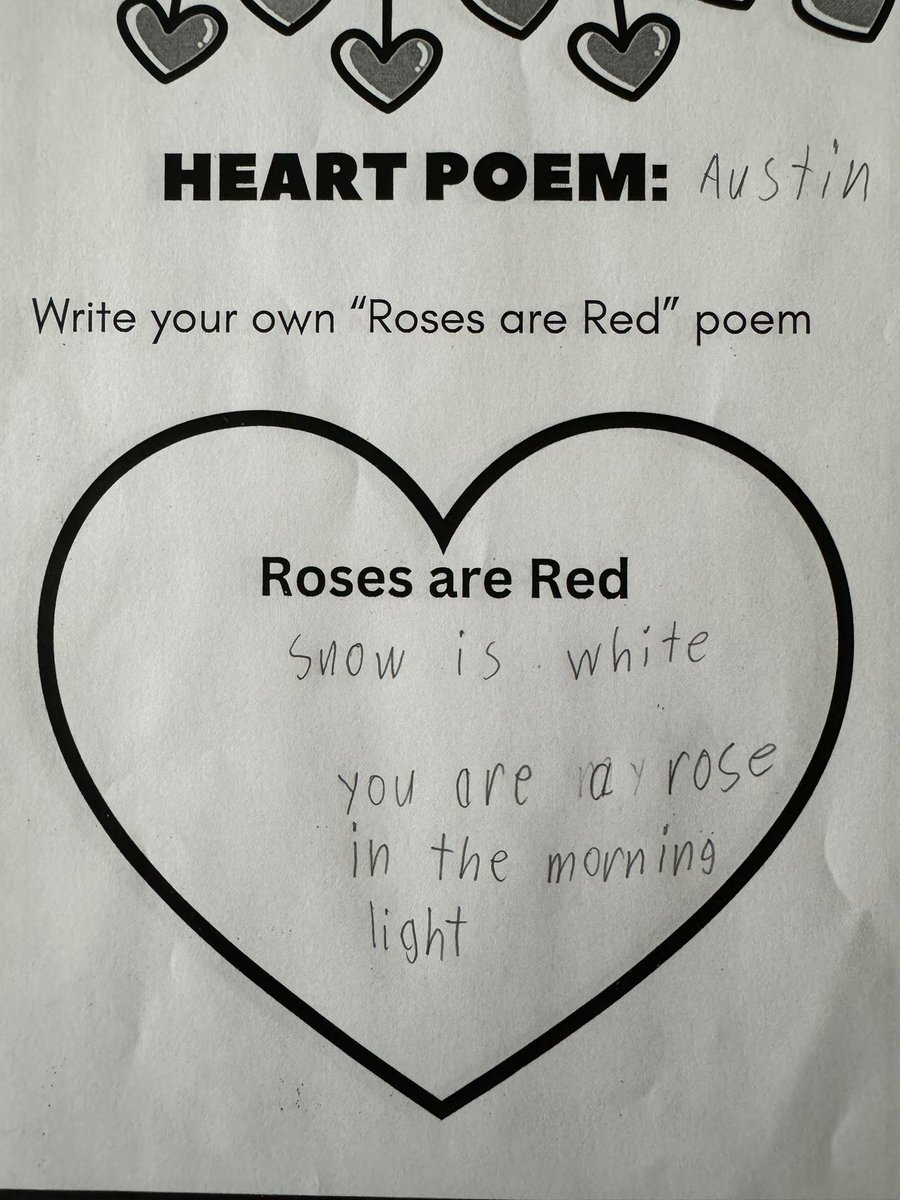 HEART POEM: Austin
Write your own “Roses are Red” poem
Roses are Red
snow is white
you are a rose
in the morning
light